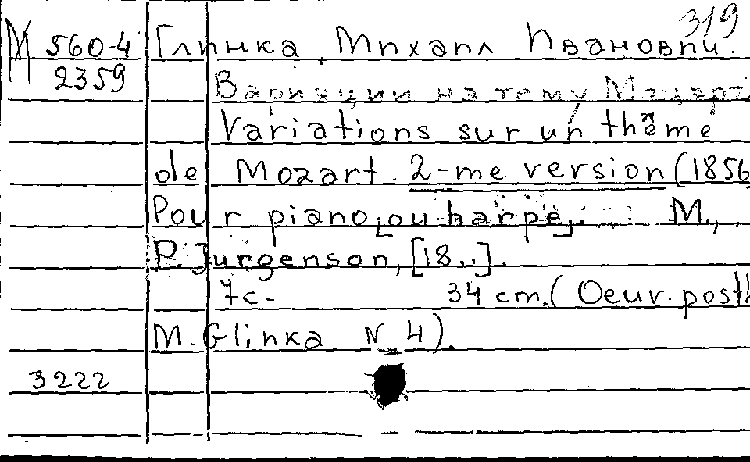 319
М 560-4 Глинка, Михаил Иванович.
2359 Вариации на тему Моцарт
Variations sur un thème
de Mozart. 2-me version (1856
Pour piano [ou harpe]. М.,
P. Jurgenson, [18..].
7с. 34 cm. (Oeuv. post.
M. Glinka N 4).
3222